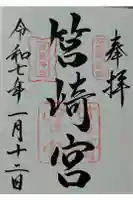 奉拝
筥崎宮
令和七年一月十二日